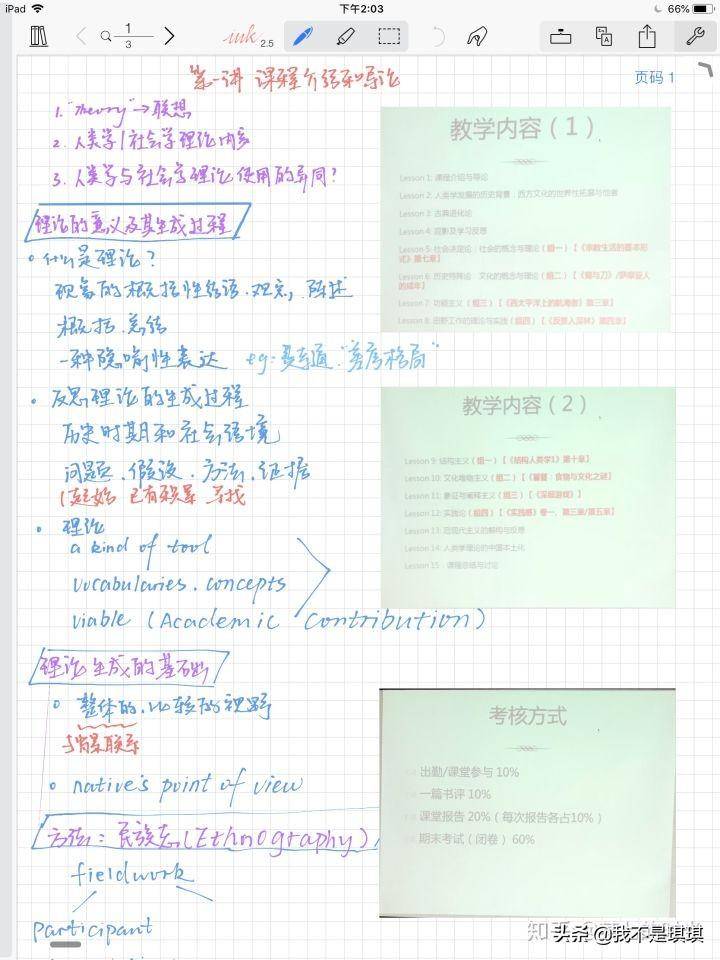 iPad
下午2:03
66%
1
3
ink 2.5
第一讲 课程介绍和导论
页码 1
1. "Theory"→联想
2. 人类学/社会学理论内容
3. 人类学与社会学理论使用的异同?
理论的意义及其生成过程
什么是理论?
现象的概括性结语.观点,陈述
概括.总结
一种隐喻性表达 eg:费孝通."差序格局"
反思理论的生成过程
历史时期和社会语境
问题.假设.方法.证据
起始 已有积累 寻找
理论
a kind of tool
vocabularies.concepts
viable (Academic Contribution)
理论生成的基础
整体的.比较的视野
与背景联系
native's point of view
方法:民族志(Ethnography)
fieldwork
participant
教学内容(1)
Lesson 1: 课程介绍与导论
Lesson 2: 人类学发展的历史背景:西方文化的世界性拓展与他者
Lesson 3: 古典进化论
Lesson 4: 观影及学习反思
Lesson 5: 社会决定论:社会的概念与理论(组一)【《宗教生活的基本形
式》第七章】
Lesson 6: 历史特殊论:文化的概念与理论(组二)【《菊与刀》/《萨摩亚人
的成年》
Lesson 7: 功能主义(组三)【《西太平洋上的航海者》第三章】
Lesson 8: 田野工作的理论与实践(组四)【《反景入深林》第四章】
教学内容(2)
Lesson 9: 结构主义(组一)【《结构人类学1》第十章】
Lesson 10: 文化唯物主义(组二)【《好吃:食物与文化之谜》
Lesson 11: 象征与阐释主义(组三)【《深层游戏》】
Lesson 12: 实践论(组四)【《实践感》卷一、第三章/第五章】
Lesson 13: 后现代主义的解构与反思
Lesson 14: 人类学理论的中国本土化
Lesson 15: 课程总结与讨论
考核方式
出勤/课堂参与 10%
一篇书评 10%
课堂报告 20%(每次报告各占10%)
期末考试(闭卷) 60%
知乎
头条 @我不是琪琪